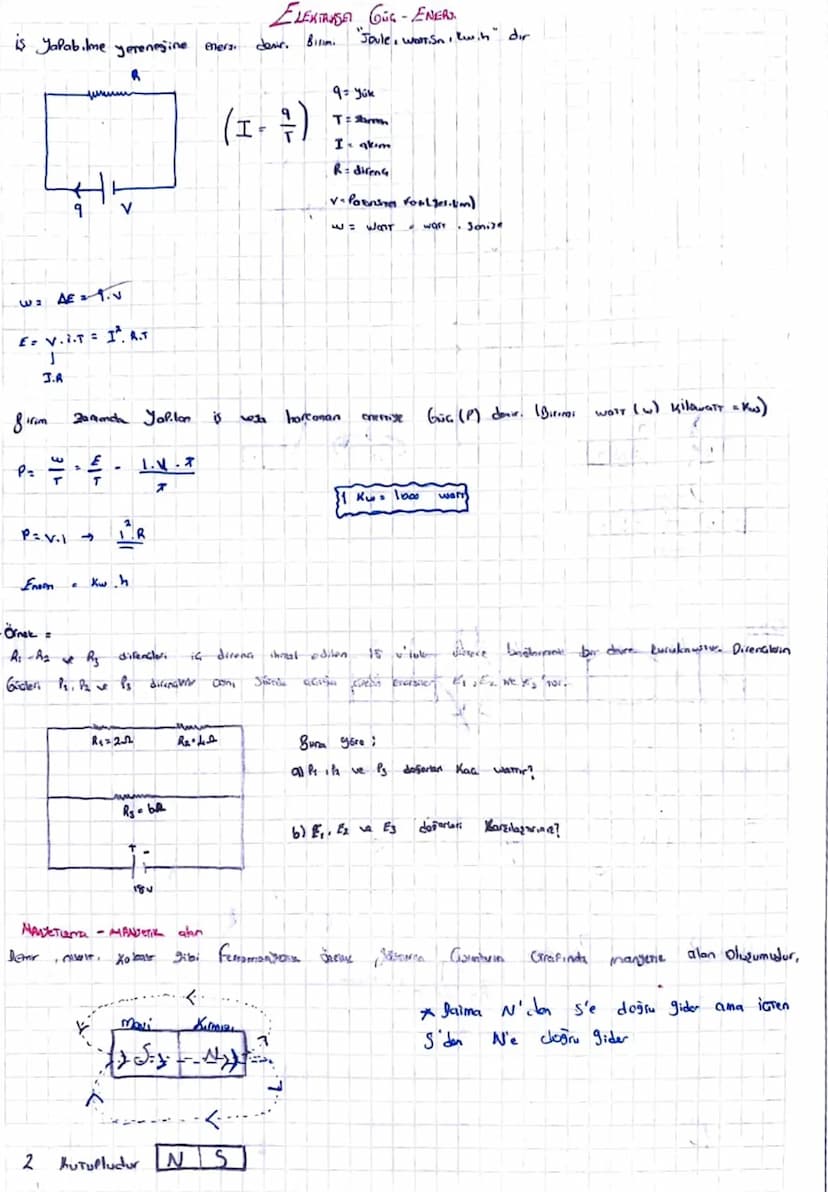 ELEKTRİKSEL GÜÇ - ENERJİ
İş yapabilme yeteneğine enerji denir. Birimi "Joule, watt.sn, kw.h" dır
R
q
V
(I = q/T)
q = yük
T = zaman
I = akım
R = direnç
V = Potansiyel
w = watt = watt . saniye
w = ΔE = q.v
E = V.i.T = I².R.T
I.R
Birim zamanda yapılan iş veya harcanan enerjiye Güç (P) denir. (Birimi watt (w) kilowatt = kw)
P = w/T = E/T = I.V.T/T
1 kw = 1000 watt
P = V.I → I².R
= kw.h
Örnek =
R₁ - R₂ ve R₃ dirençleri iç direnci ihmal edilen bir devre Dirençlerin
Güçleri P₁, P₂ ve P₃ E₁, E₂ ve E₃'tür.
R₁ = 2Ω
R₂ = 4Ω
R₃ = 6Ω
+ -
18V
Buna göre ;
a) P₁, P₂ ve P₃ değerleri kaç wattır?
b) E₁, E₂ ve E₃ değerleri karşılaştırınız?
- MANYETİK alan
Demir, nikel, kobalt gibi etrafında manyetik alan oluşumudur,
Mavi
Kırmızı
S
N
* Daima N'den S'e doğru gider ama içten
S'den N'e doğru gider
2 kutupludur
N S